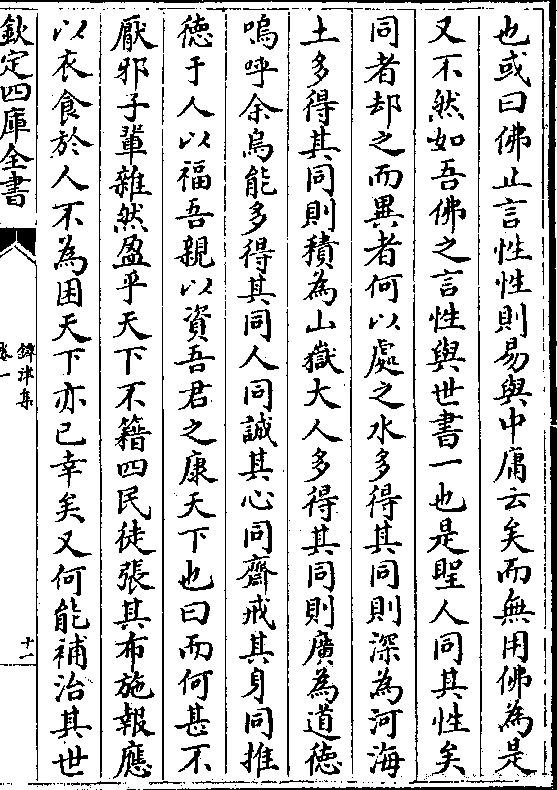 也或曰佛止言性性則易與中庸云矣而無用佛為是
又不然如吾佛之言性與世書一也是聖人同其性矣
同者却之而異者何以處之水多得其同則深為河海
土多得其同則積為山嶽大人多得其同則廣為道德
嗚呼余烏能多得其同人同誠其心同齋戒其身同推
德于人以福吾親以資吾君之康天下也曰而何甚不
厭邪子軰雜然盈乎天下不籍四民徒張其布施報應
以衣食於人不為困天下亦已幸矣又何能補治其世
欽定四庫全書
鐔津集
卷一
十一